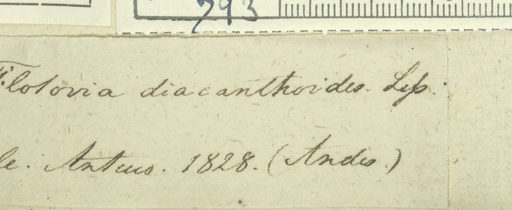 793
Flotovia diacanthoides. Less.
le. Antuco. 1828. (Andes.)